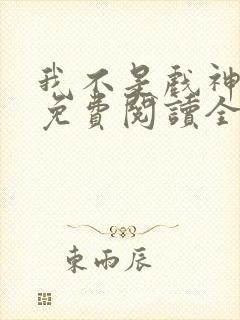 我不是戲神
免費閱讀全
東雨辰